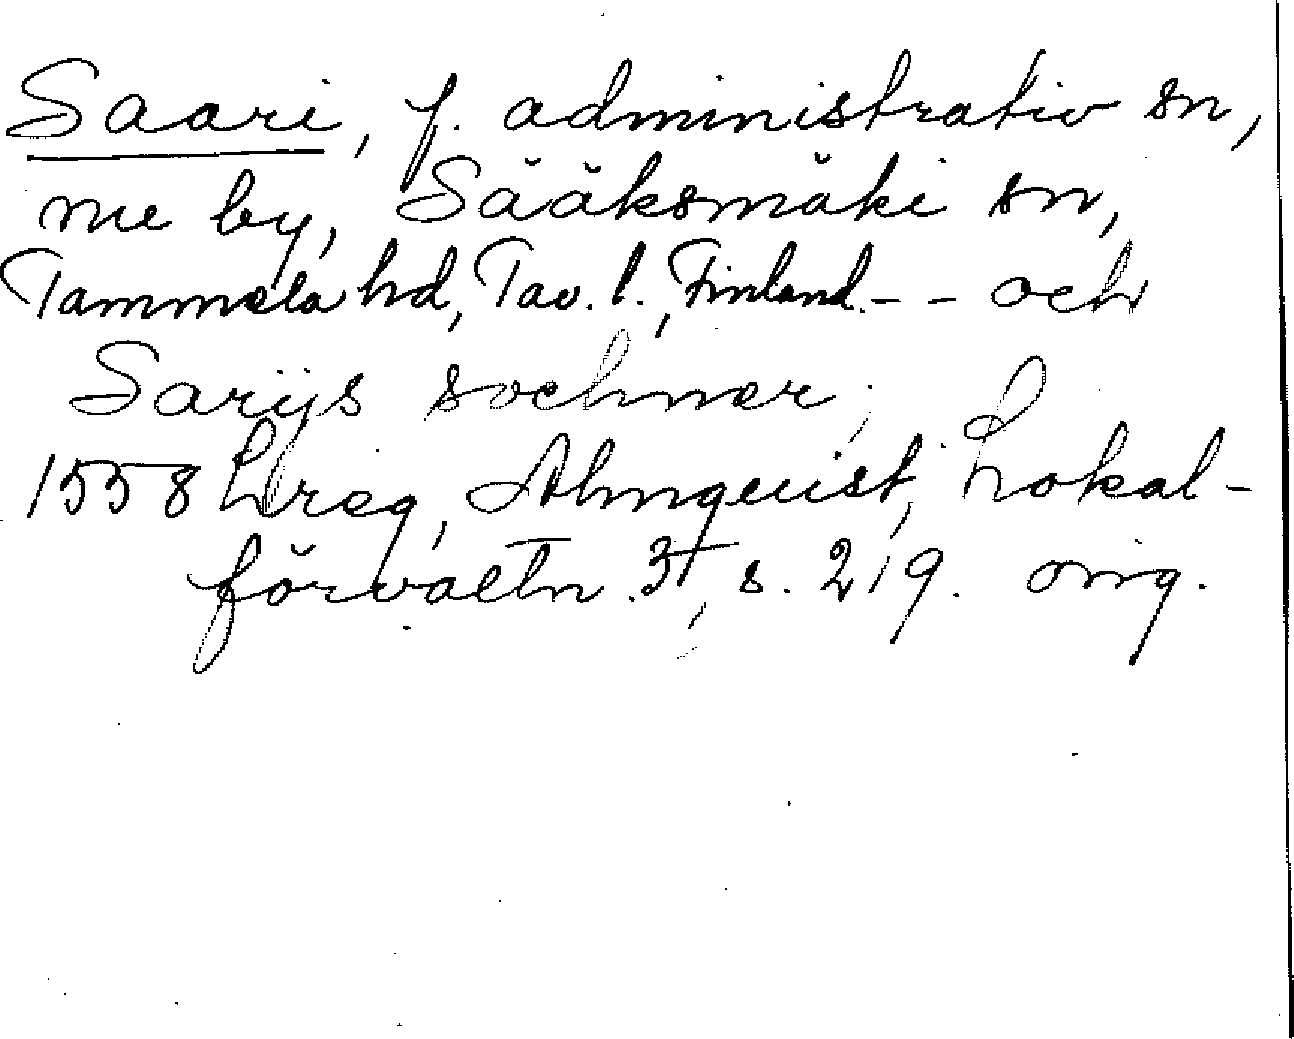 Saari, f. administrativ sn,
nu by, Sääksmäki sn,
Tammela hd, Tav. l., Finland. - - och
Sarijs sochner;
1558 Lreg, Almquist, Lokal-
förvaltn. 3, s. 219. orig.